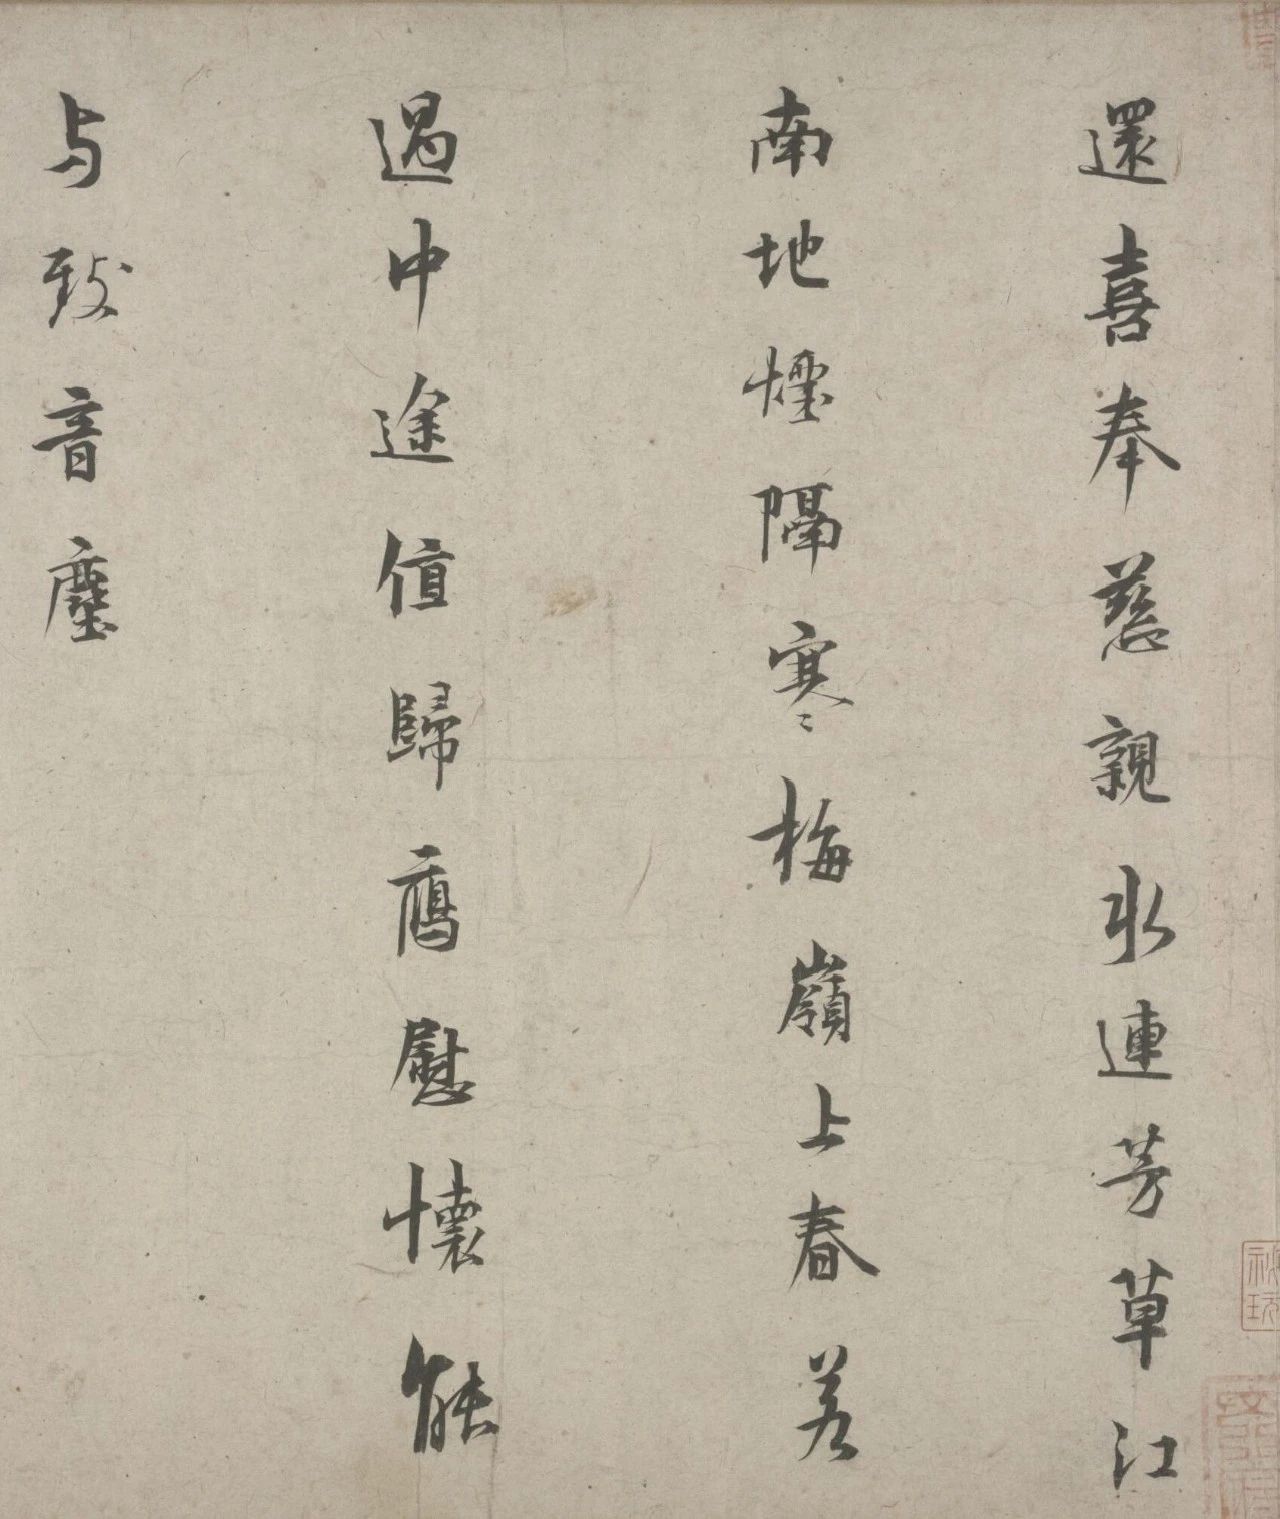 還喜奉慈親水連芳草江
南地煙隔寒梅嶺上春若
過中途值歸雁慰懷能
与致音塵